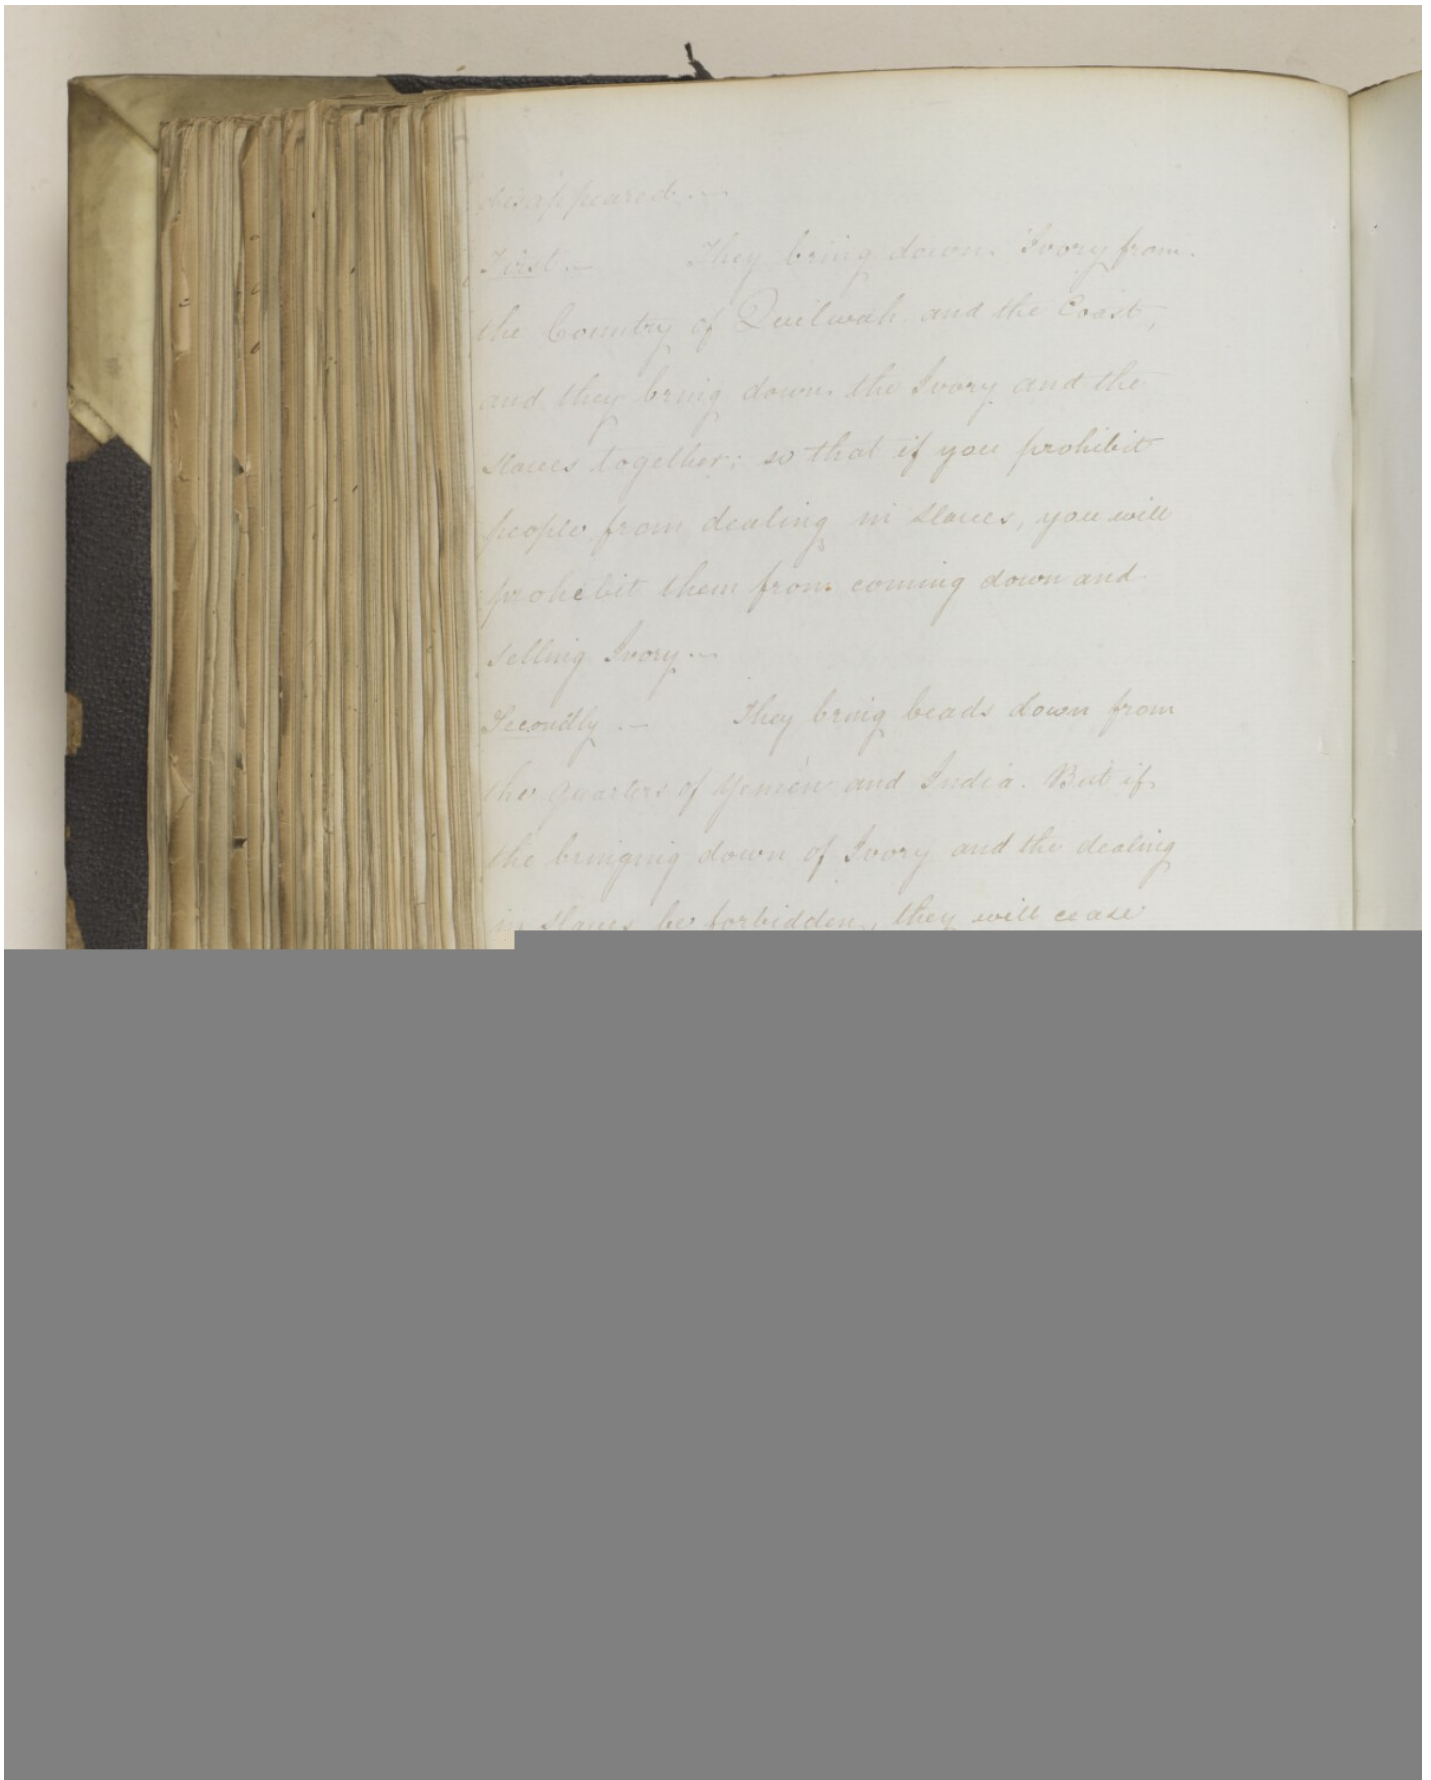 disappeared. —
First. — They bring down Ivory from
the Country of Quilwah and the Coast,
and they bring down the Ivory and the
slaves together; so that if you prohibit
people from dealing in slaves, you will
prohibit them from coming down and
selling Ivory. —
Secondly. — They bring beads down from
the quarters of Yemen and India. But if
the bringing down of Ivory and the dealing
in slaves be forbidden, they will cease